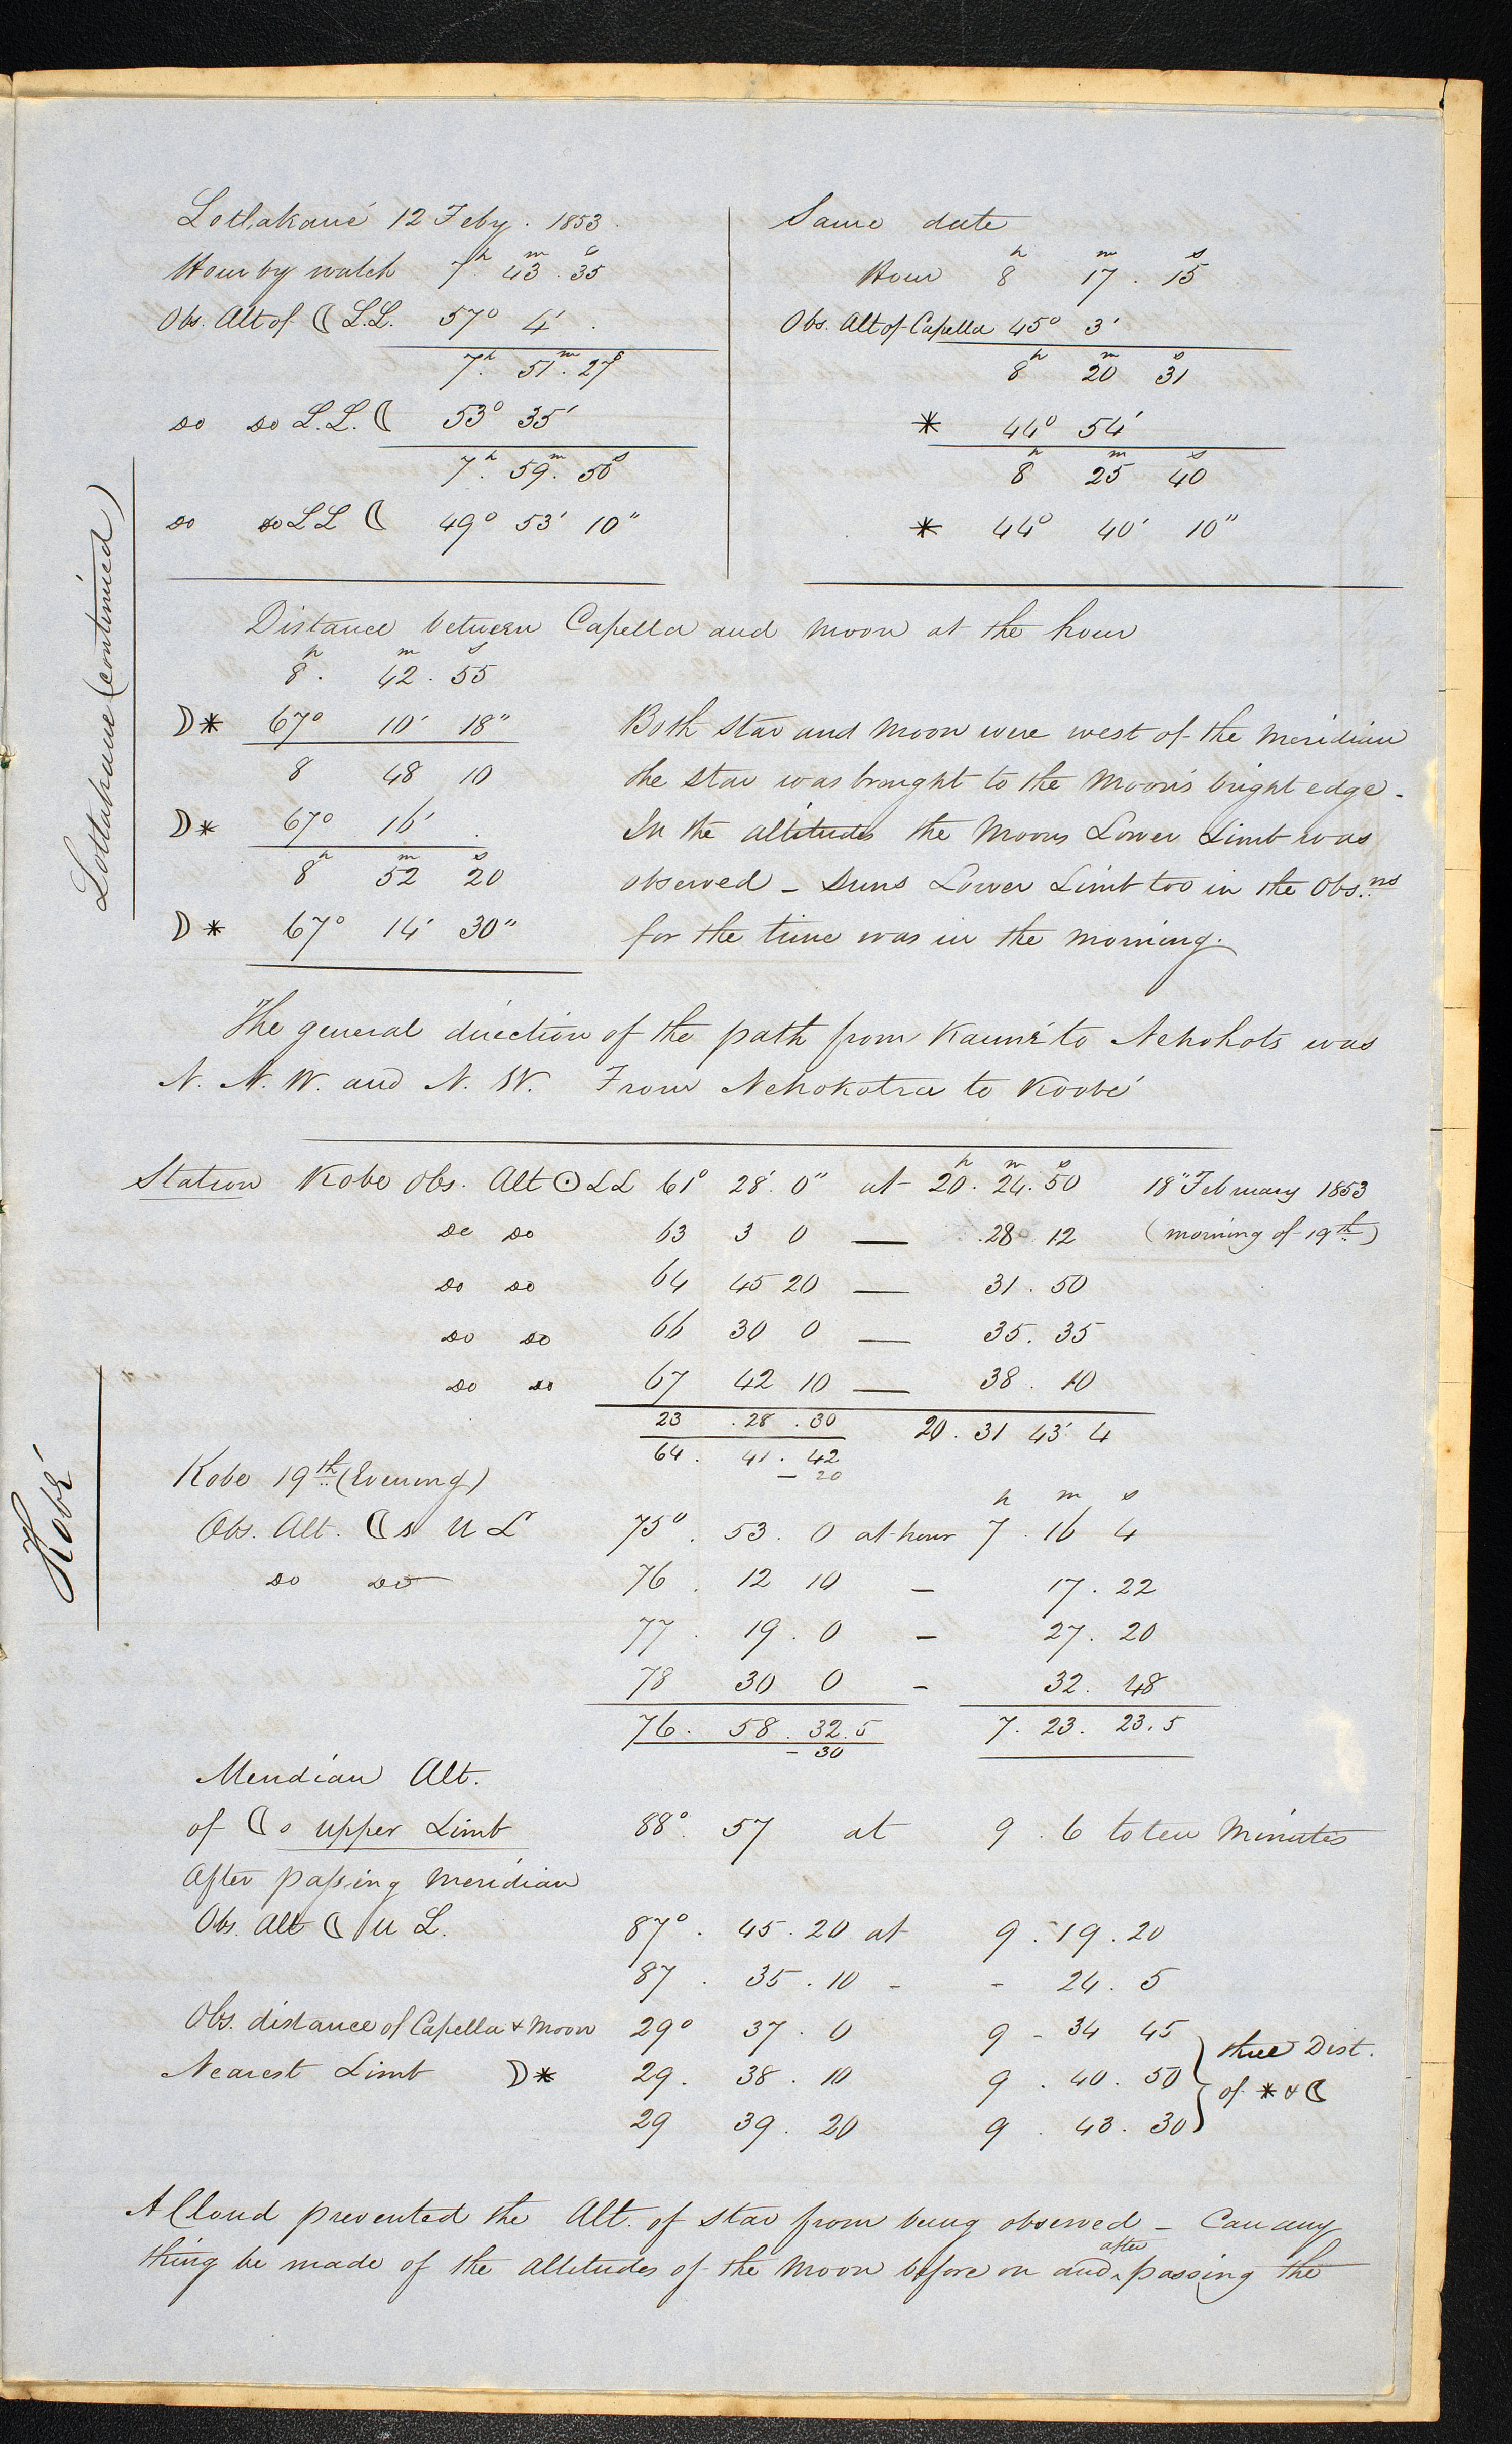 Lotlakane (continued)
Lotlakané 12 Feby. 1853.
Hour by watch 7h. 43m. 35s
Obs. Alt of ☾ L.L. 57° 4'.
7h. 51m. 27s
do do L.L. ☾ 53° 35'
7h. 59m. 50s
do do L L ☾ 49° 53' 10"
Same date
Hour 8h 17m. 15s
Obs. Alt of Capella 45° 3'
8h 20m 31s
* 44° 54'
8h 25m 40s
* 44° 40' 10"
Distance between Capella and Moon at the hour
8h. 42m. 55s
☽* 67° 10' 18"
8 48 10
☽* 67° 16' .
8h 52m 20s
☽* 67° 14' 30"
Both star and Moon were west of the Meridian
the star was brought to the Moon's bright edge -
In the altitudes the Moons Lower Limb was
observed - Suns Lower Limb too in the Obs.ns
for the time was in the morning.
The general direction of the path from Kamné to Nchokots was
N. N. W. and N. W. From Nchokotsa to Koobé
Kobé
Station Kobe Obs. Alt ☉ LL 61° 28'. 0" at 20h. 24m. 50s 18" February 1853
do do 63 3 0 — .28 12 (morning of 19th)
do do 64 45 20 — 31 . 50
do do 66 30 0 — 35. 35
do do 67 42 10 — 38 . 10
23 . 28 . 30 20 . 31 43' 4
64 . 41 . 42
- 20
Kobe 19th (Evening)
Obs. Alt. ☾s U L 75° . 53 . 0 at hour 7h . 16m 4s
do do 76 . 12 10 - 17 . 22
77 . 19 . 0 - 27. 20
78 30 0 - 32. 48
76. 58 . 32.5 7. 23. 23.5
- 30
Meridian Alt.
of ☾s upper Limb 88°. 57 at 9 . 6 to ten Minutes
After passing Meridian
Obs. Alt ☾ U L. 87° . 45 . 20 at 9 . 19 . 20
87 . 35 . 10 - - 24 . 5
Obs. distance of Capella & Moon 29° 37 . 0 9 - 34 45
Nearest Limb ☽* 29. 38 . 10 9 . 40 . 50
29 39 . 20 9 . 43 . 30
three Dist.
of * & ☾
A Cloud prevented the Alt. of star from being observed - Can any
thing be made of the altitudes of the Moon before on and ^after passing the